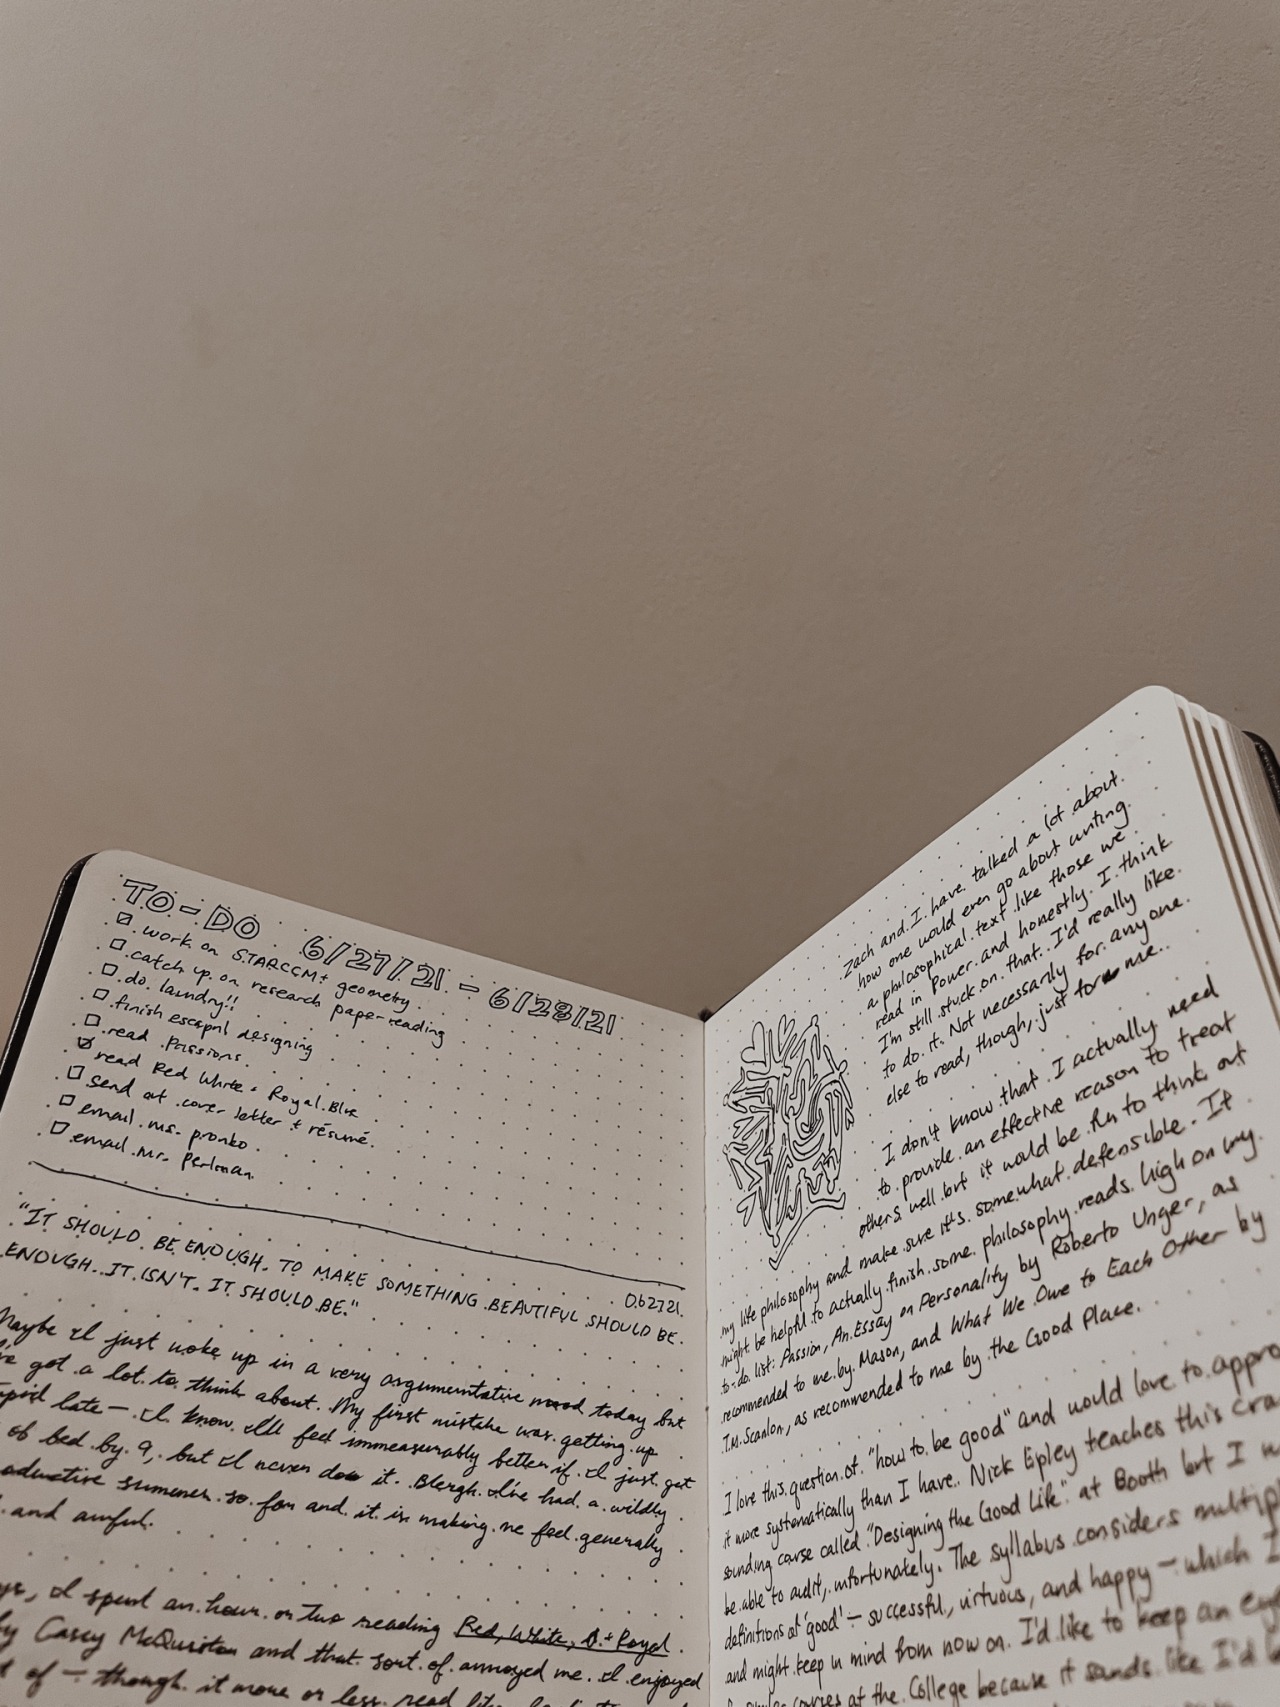 TO-DO 6/27/21 - 6/28/21
work on STARCCM+ geometry
catch up on research paper-reading
do laundry!!
finish designing
read Passions
read Red White + Royal Blue
send out cover letter + résumé.
email ms. pronko
email mr. Perlman
"IT SHOULD BE ENOUGH. TO MAKE SOMETHING BEAUTIFUL SHOULD BE
ENOUGH. IT ISN'T. IT SHOULD BE."
062721.
Maybe I just woke up in a very argumentative mood today but
got a lot to think about. My first mistake was getting up
late — I know I'll feel immeasurably better if I just get
of bed by 9, but I never do it. Blergh. I've had a wildly
summer so far and it is making me feel generally
and awful.
I spent an hour or two reading Red, White, B + Royal
by Casey McQuiston and that sort of annoyed me. I enjoyed
of — though it more or less read
Zach and I have talked a lot about
how one would even go about writing
a philosophical text like those we
read in Power and honestly I think
I'm still stuck on that. I'd really like
to do it. Not necessarily for anyone
else to read, though, just for me.
I don't know that I actually need
to provide an effective reason to treat
others well but it would be fun to think out
my life philosophy and make sure it's somewhat defensible. It
might be helpful to actually finish some philosophy reads high on my
to-do list: Passion, An Essay on Personality by Roberto Unger, as
recommended to me by Mason, and What We Owe to Each Other by
T.M. Scanlon, as recommended to me by the Good Place.
I love this question of "how to be good" and would love to
it more systematically than I have. Nick Epley teaches this
sounding course called "Designing the Good Life" at Booth but I
be able to audit, unfortunately. The syllabus considers
definitions of 'good' — successful, virtuous, and happy — which I
and might keep in mind from now on. I'd like to keep an
courses at the College because it sounds like I'd